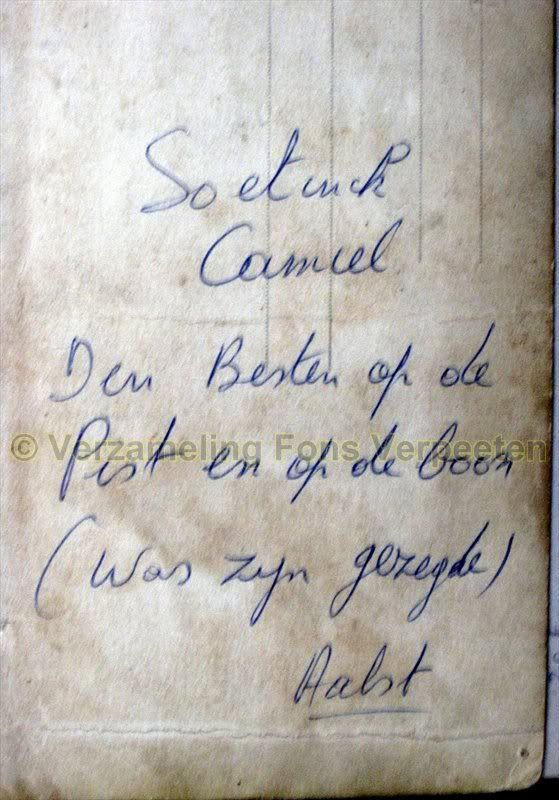 Soetinck
Camiel
Den Besten op de
© Verzameling Fons Verpeeten
Pist en op de boon
(Was zijn gezegde)
Aalst